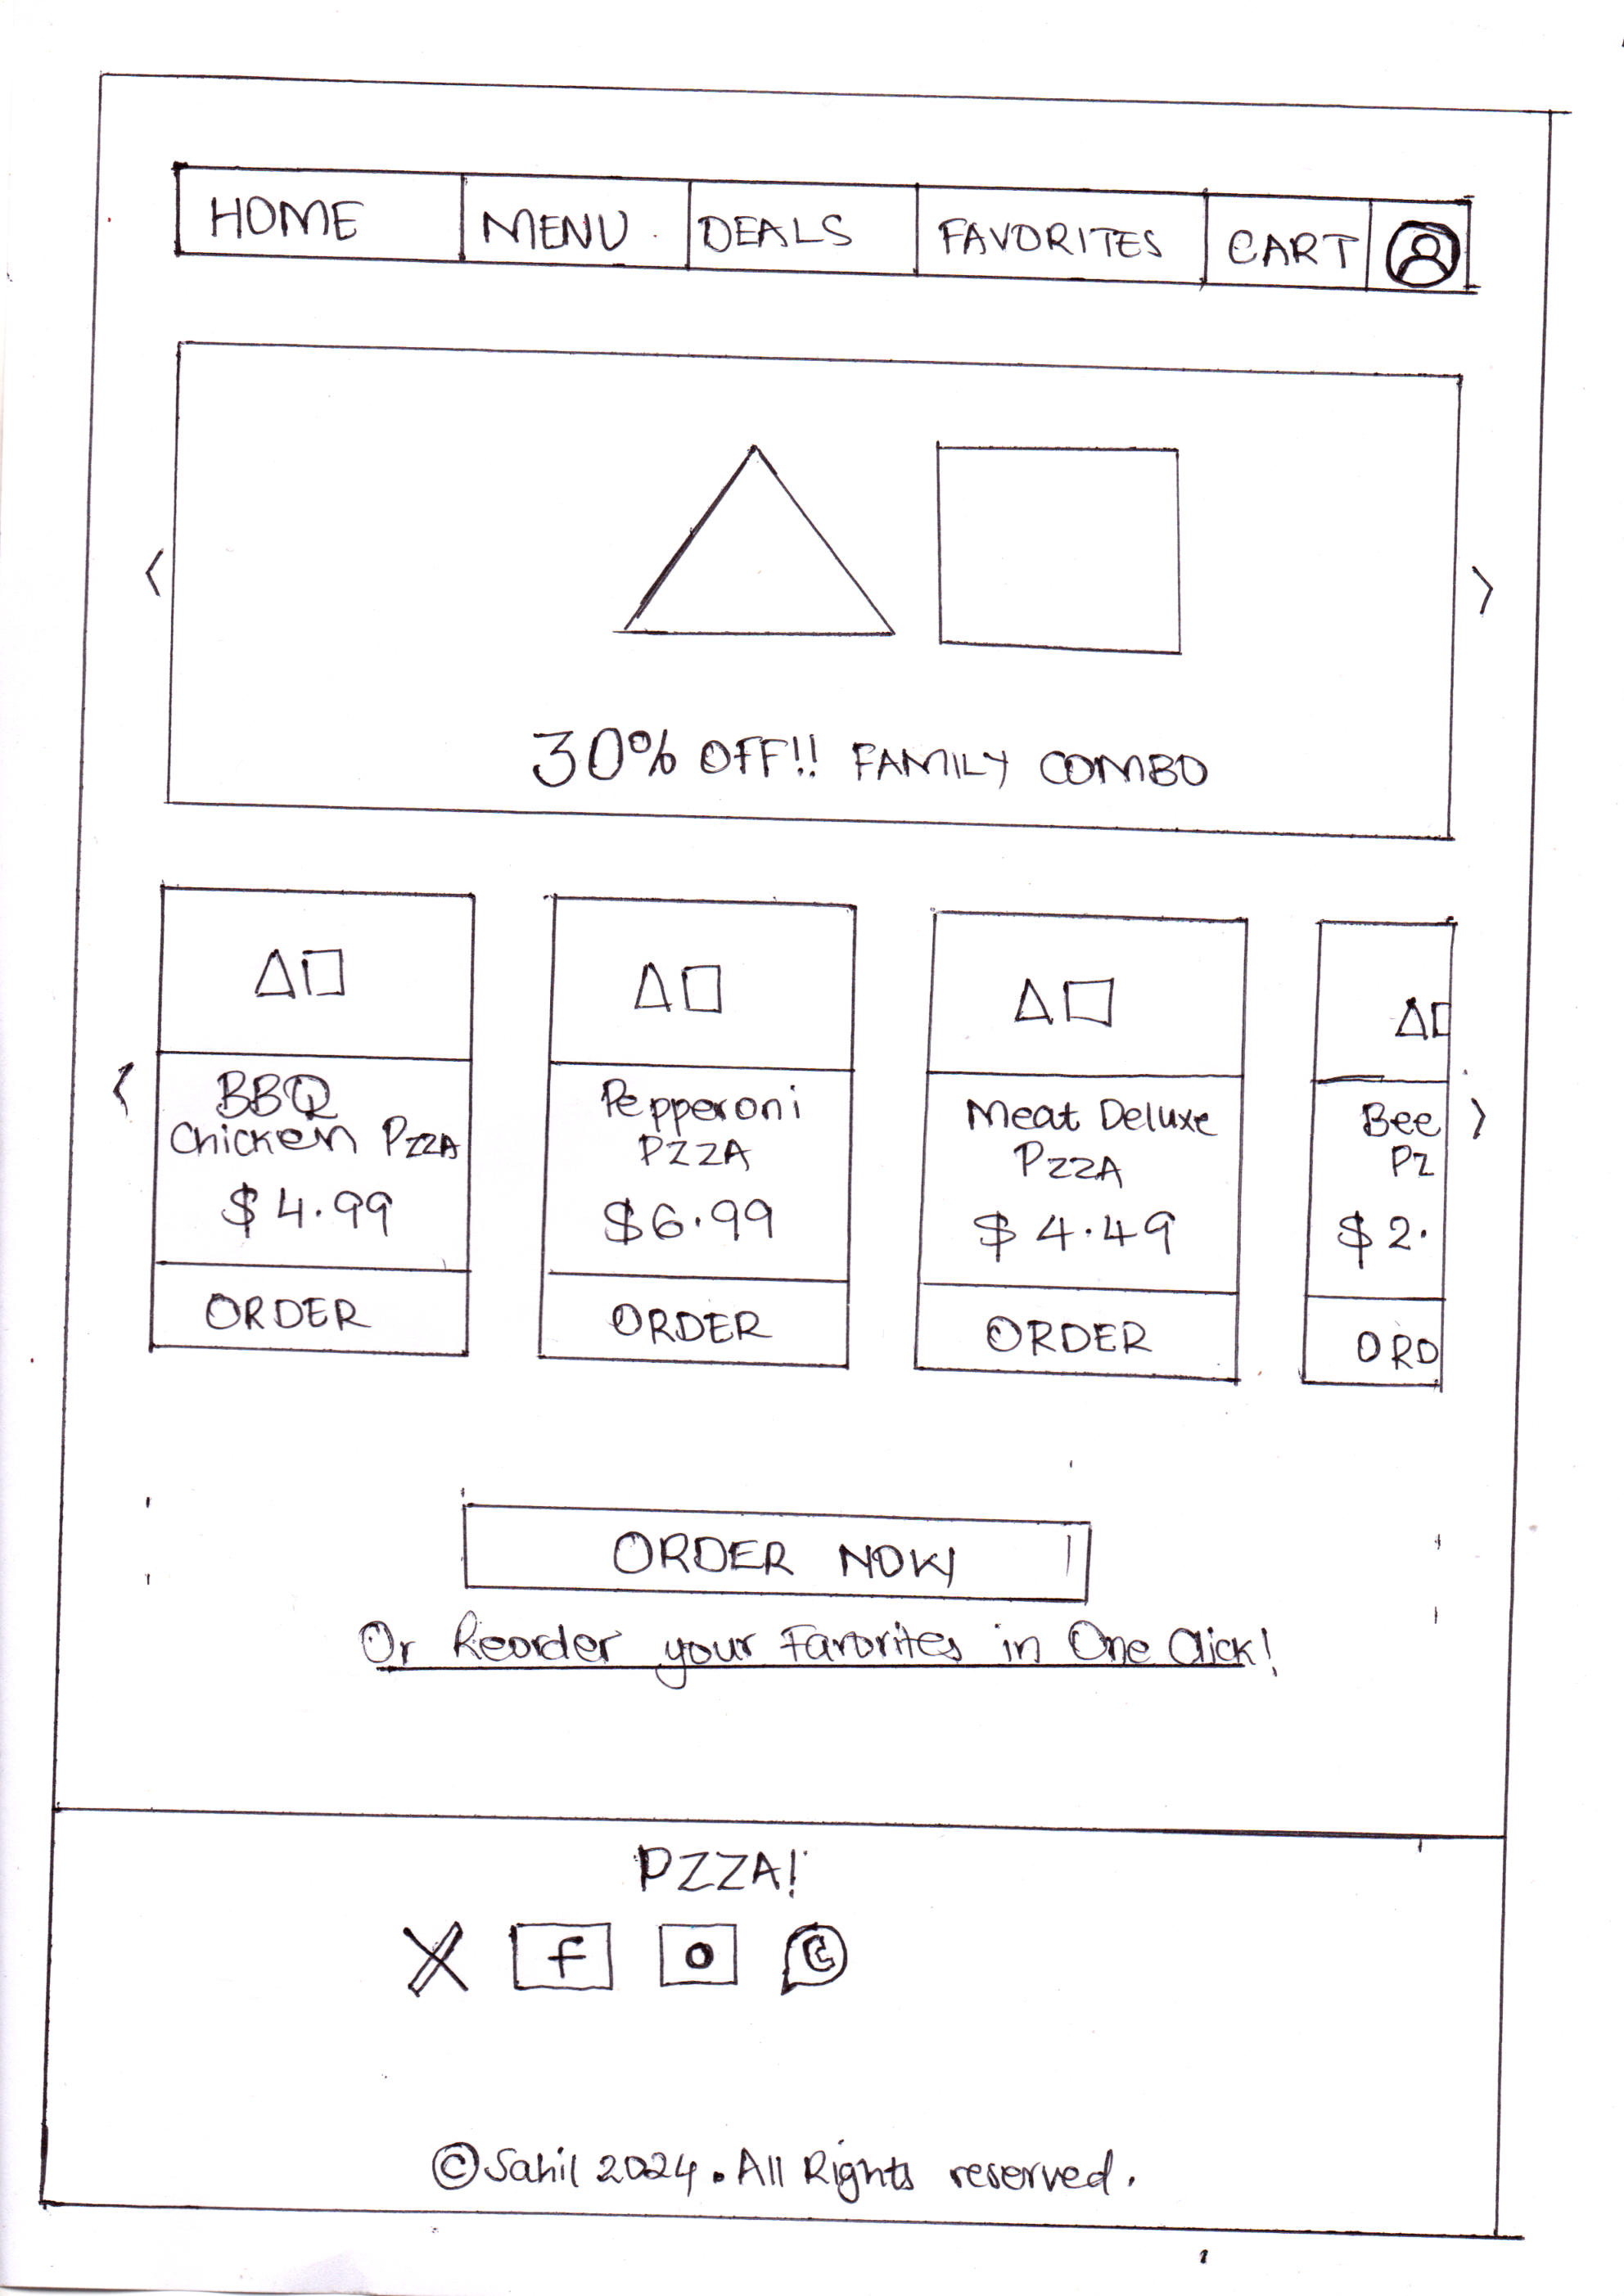 HOME MENU DEALS FAVORITES CART
30% OFF!! FAMILY COMBO
BBQ
Chicken PZZA
$4.99
ORDER
Pepperoni
PZZA
$6.99
ORDER
Meat Deluxe
PZZA
$4.49
ORDER
Bee
PZ
$2.
ORD
ORDER NOW
Or Reorder your Favorites in One Click!
PZZA!
X f
© Sahil 2024. All Rights reserved.